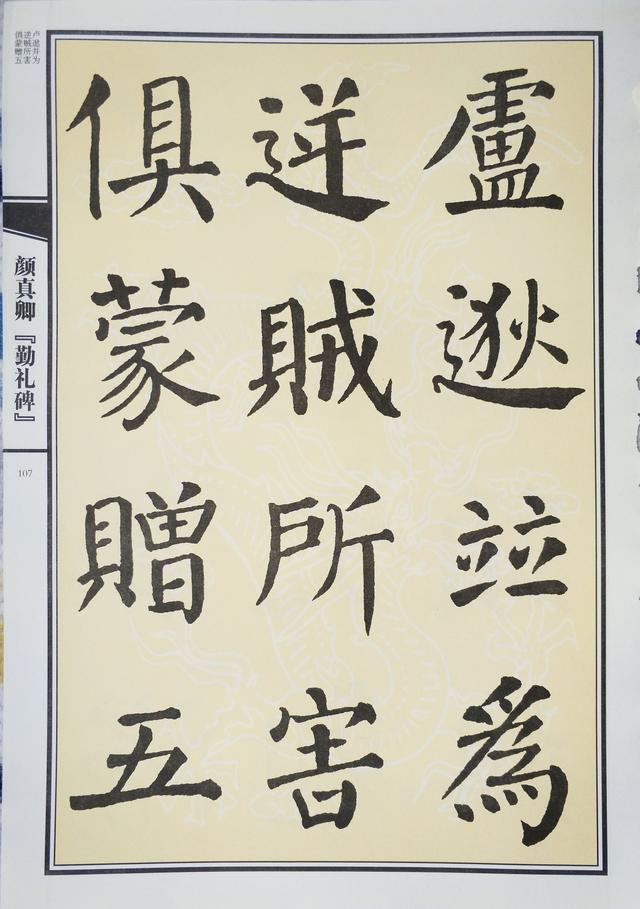 盧逖竝為
逆賊所害
俱蒙贈五
卢逖并为
逆贼所害
俱蒙赠五
颜真卿『勤礼碑』
107